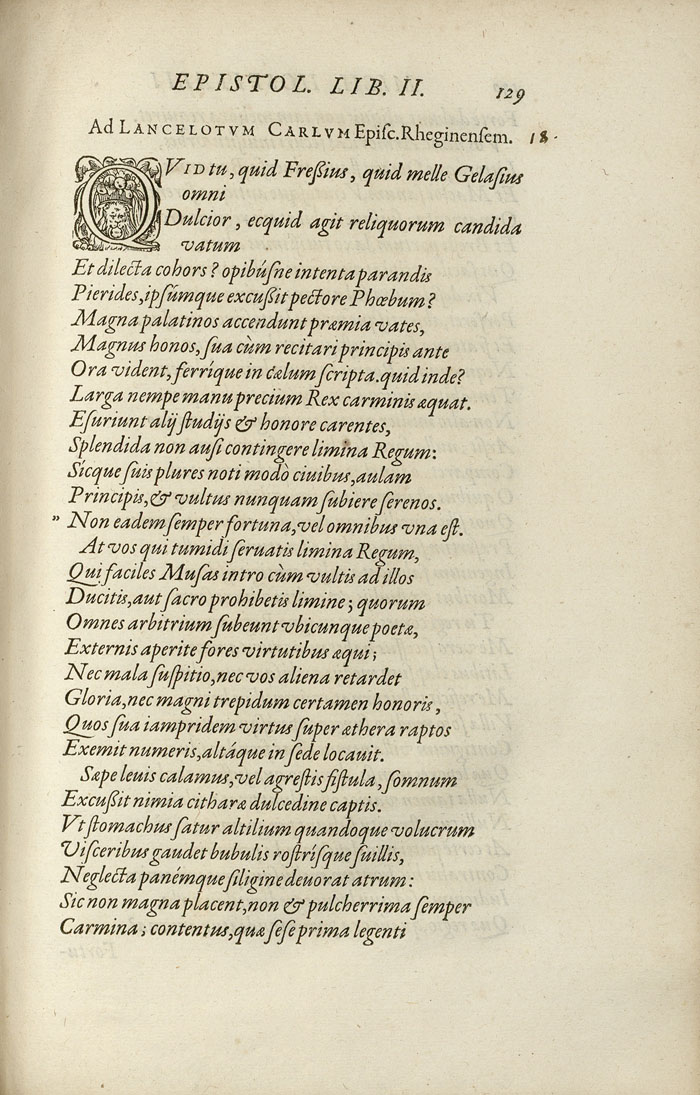 EPISTOL. LIB. II. 129
Ad LANCELOTVM CARLVM Episc. Rheginensem. 18.
QVID tu, quid Freßius, quid melle Gelasius
omni
Dulcior, ecquid agit reliquorum candida
vatum
Et dilecta cohors? opibúsne intenta parandis
Pierides, ipsúmque excußit pectore Phœbum?
Magna palatinos accendunt præmia vates,
Magnus honos, sua cùm recitari principis ante
Ora vident, ferríque in cælum scripta. quid inde?
Larga nempe manu precium Rex carminis æquat.
Esuriunt alij studijs & honore carentes,
Splendida non ausi contingere limina Regum:
Sicque suis plures noti modò ciuibus, aulam
Principis, & vultus nunquam subiere serenos.
” Non eadem semper fortuna, vel omnibus vna est.
At vos qui tumidi seruatis limina Regum,
Qui faciles Musas intro cùm vultis ad illos
Ducitis, aut sacro prohibetis limine; quorum
Omnes arbitrium subeunt vbicunque poetæ,
Externis aperite fores virtutibus æqui;
Nec mala suspitio, nec vos aliena retardet
Gloria, nec magni trepidum certamen honoris,
Quos sua iampridem virtus super æthera raptos
Exemit numeris, altáque in sede locauit.
Sæpe leuis calamus, vel agrestis fistula, somnum
Excußit nimia citharæ dulcedine captis.
Vt stomachus satur altilium quandoque volucrum
Visceribus gaudet bubulis rostrísque suillis,
Neglecta panémque siligine deuorat atrum:
Sic non magna placent, non & pulcherrima semper
Carmina; contentus, quæ sese prima legenti